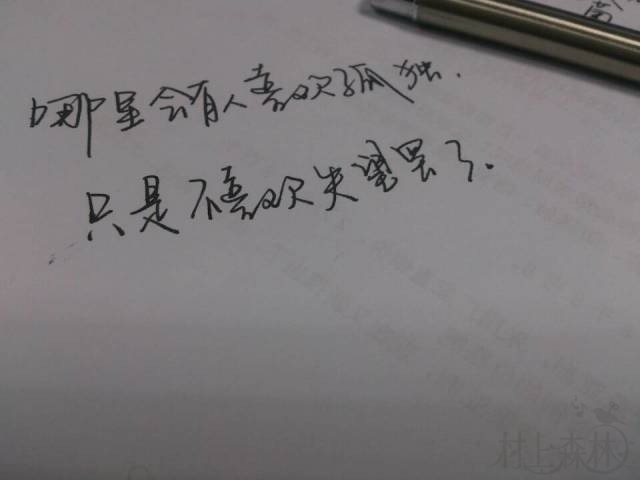 哪里会有人喜欢孤独.
只是不喜欢失望罢了.
村上森林